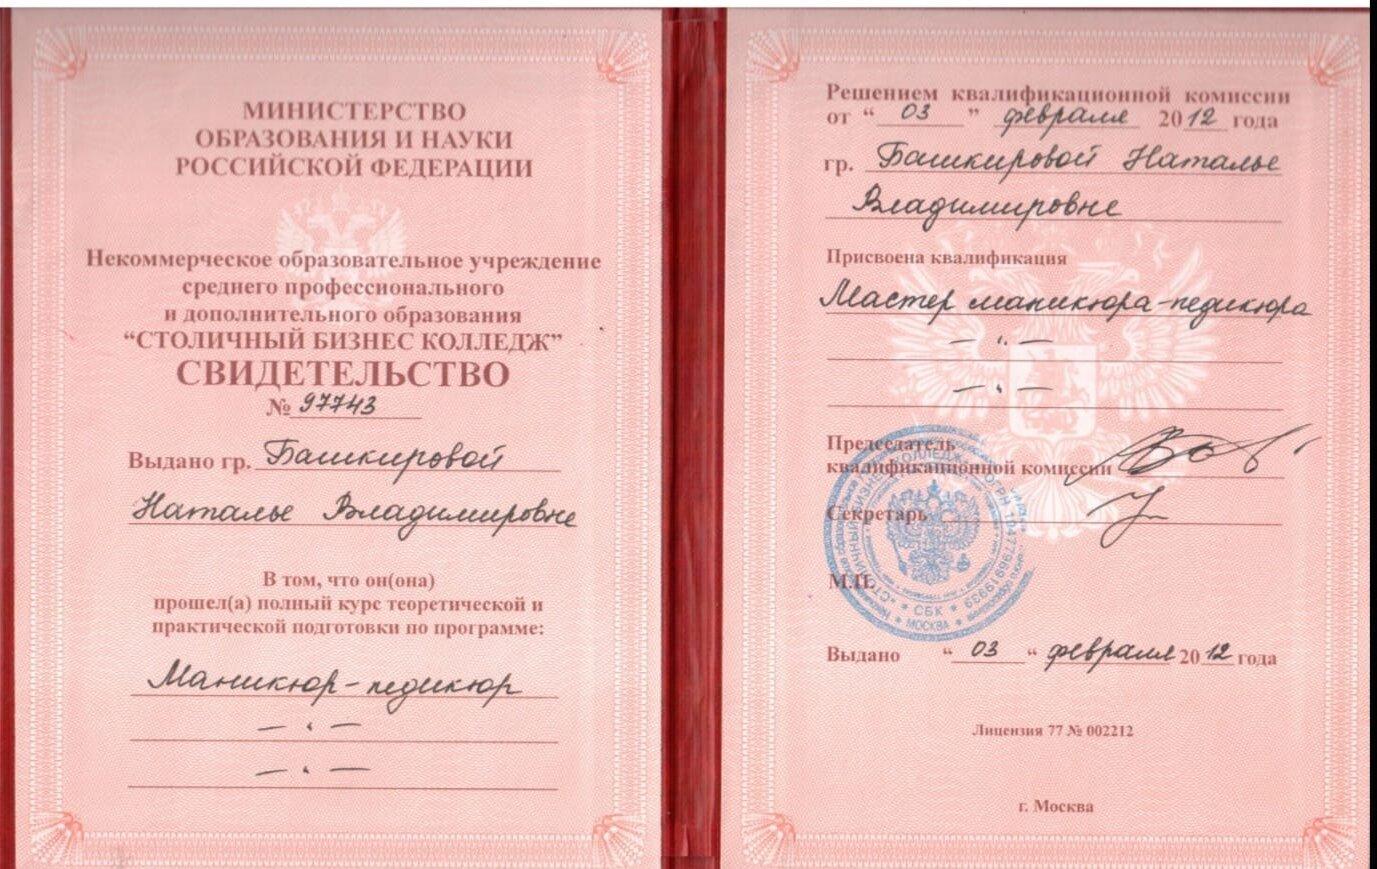 МИНИСТЕРСТВО
ОБРАЗОВАНИЯ И НАУКИ
РОССИЙСКОЙ ФЕДЕРАЦИИ
Некоммерческое образовательное учреждение
среднего профессионального
и дополнительного образования
“СТОЛИЧНЫЙ БИЗНЕС КОЛЛЕДЖ”
СВИДЕТЕЛЬСТВО
№ 97743
Выдано гр. Башкировой
Наталье Владимировне
В том, что он(она)
прошел(а) полный курс теоретической и
практической подготовки по программе:
Маникюр-педикюр
— " —
— " —
Решением квалификационной комиссии
от “ 03 ” февраля 2012 года
гр. Башкировой Наталье
Владимировне
Присвоена квалификация
Мастер маникюра-педикюра
— " —
— " —
Председатель
квалификационной комиссии
Секретарь
М.П.
СБК
МОСКВА
Выдано “ 03 “ февраля 2012 года
Лицензия 77 № 002212
г. Москва